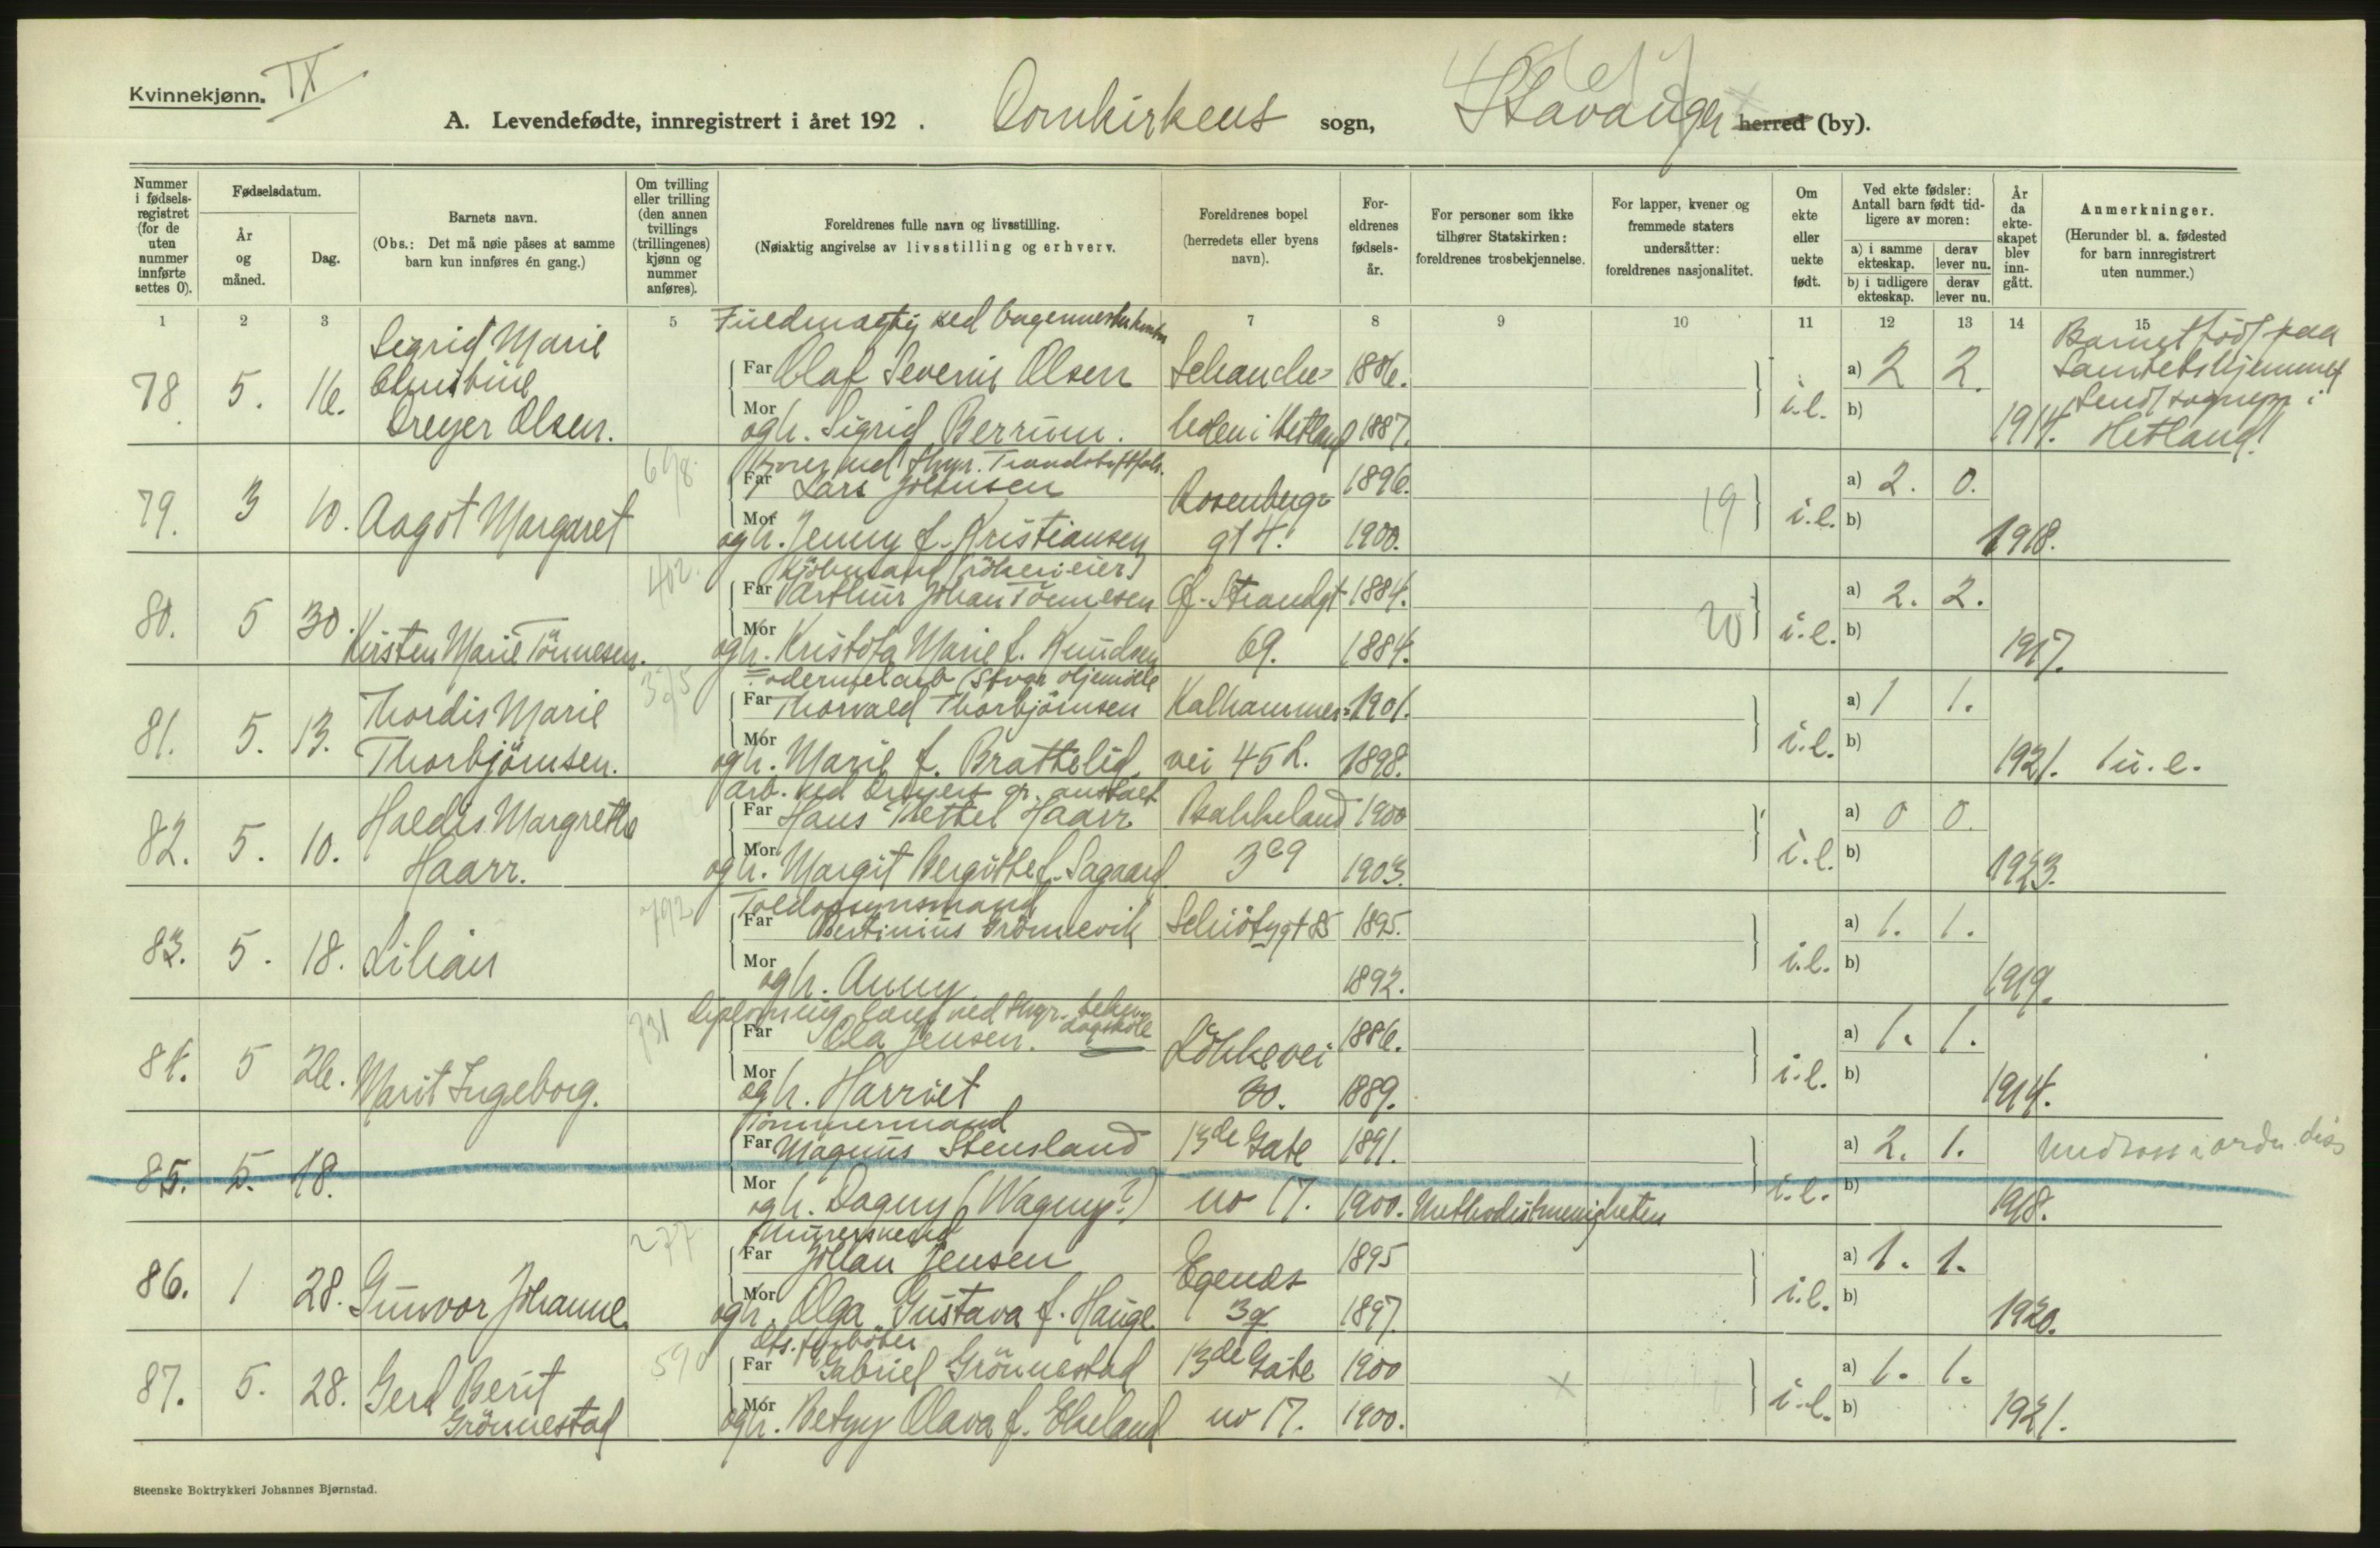 Kvinnekjønn. IX
A. Levendefødte, innregistrert i året 192 . Domkirkens sogn, Stavanger herred (by).
Nummer i fødselsregistret (for de uten nummer innførte settes 0).
Fødselsdatum.
År og måned.
Dag.
Barnets navn.
(Obs.: Det må nøie påses at samme barn kun innføres én gang.)
Om tvilling eller trilling (den annen tvillings (trillingenes) kjønn og nummer anføres).
Foreldrenes fulle navn og livsstilling.
(Nøiaktig angivelse av livsstilling og erhverv.
Foreldrenes bopel (herredets eller byens navn).
Foreldrenes fødselsår.
For personer som ikke tilhører Statskirken: foreldrenes trosbekjennelse.
For lapper, kvener og fremmede staters undersåtter: foreldrenes nasjonalitet.
Om ekte eller uekte født.
Ved ekte fødsler: Antall barn født tidligere av moren:
a) i samme ekteskap. derav lever nu.
b) i tidligere ekteskap. derav lever nu.
År da ekteskapet blev inngått.
Anmerkninger.
(Herunder bl. a. fødested for barn innregistrert uten nummer.)
1 2 3 5 7 8 9 10 11 12 13 14 15
78 5. 16. Sigrid Marie
Dreyer Olsen.
Far Olaf Severin Olsen 1886. a) 2 2.
Mor og h. Sigrid Berrum. i Hetland 1887. i.e. b) 1914.
Barnet født paa
Hetland!
79. 3 10. Aagot Margaret
698
Far Lars Johnsen Rosenberg- 1896. a) 2. 0.
Mor og h. Jenny f. Kristiansen gt 4. 1900. 19 i.e. b) 1918.
80. 5 30. Kirsten Marie Tönnesen.
402.
Kjöbmand
Far Arthur Johan Tönnesen Ö. Strandgt 1884. a) 2. 2.
Mor og h. Kristofa Marie f. Knudsen 69. 1884. 20 i.e. b) 1917.
81. 5. 13. Thordis Marie
Thorbjörnsen.
Far Thorvald Thorbjörnsen Kalhammer- 1901. a) 1 1.
Mor og h. Marie f. Brattelid. vei 45 b. 1898. i.e. b) 1921. 1 u.e.
82. 5. 10. Haldis Margrethe
Haarr.
Arb. ved Dreyers gr. anstalt
Far Hans Thettel Haarr Bakkeland 1900 a) 0 0.
Mor og h. Margit Bergitte f. Sagaard 1903. i.e. b) 1923.
83. 5. 18. Lilian
792
Toldopsynsmand
Far Bertinius 1895. a) 1. 1.
Mor og h. Anny 1892. i.e. b) 1919.
84. 5 26. Marit Ingeborg.
731
Far Ola Jensen. dagskole Lökkevei 1886. a) 1. 1.
Mor og h. Harriet 30. 1889. i.e. b) 1914.
85. 5. 18.
Tömmermand
Far Magnus Stensland 13de Gate 1891. a) 2. 1.
Mor og h. Dagny (Wagny?) no 17. 1900. Methodistmenigheten i.e. b) 1918.
86. 1 28. Gunvor Johanne
277
Murersvend
Far Johan Jensen Egenæs 1895 a) 1. 1.
Mor og h. Olga Gustava f. Hauge 1897. i.e. b) 1920.
87. 5. 28. Gerd Berit
Grönnestad
590
Far Gabriel Grönnestad 13de Gate 1900 x a) 1. 1.
Mor og h. Betzy Olava f. Ekeland no 17. 1900. i.e. b) 1921.
Steenske Boktrykkeri Johannes Bjørnstad.